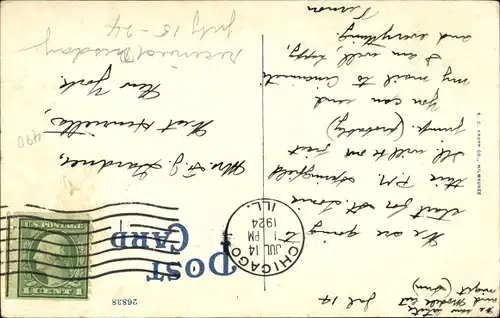 Jul 14
We are going
start for St. Louis
this P.M. Springfield
Ill. will be our first
jump. (probably)
You can send
my mail to Cincinnati
I am well, happy,
and everything.
Vernon
we saw
and
night (Sun)
POST
CARD
26838
CHICAGO
JUL 14
PM
1924
ILL.
U.S. POSTAGE
1 CENT 1
Mrs. F. J. Gardner,
West Henrietta,
New York.
received Tuesday
July 15-24
490
E. C. KROPP CO., MILWAUKEE